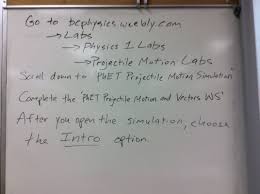 Go to bcphysics.weebly.com
→ Labs
→ Physics 1 Labs
→ Projectile Motion Labs
Scroll down to "PhET Projectile Motion Simulation"
Complete the "PhET Projectile Motion and Vectors WS"
After you open the simulation, choose
the Intro option.